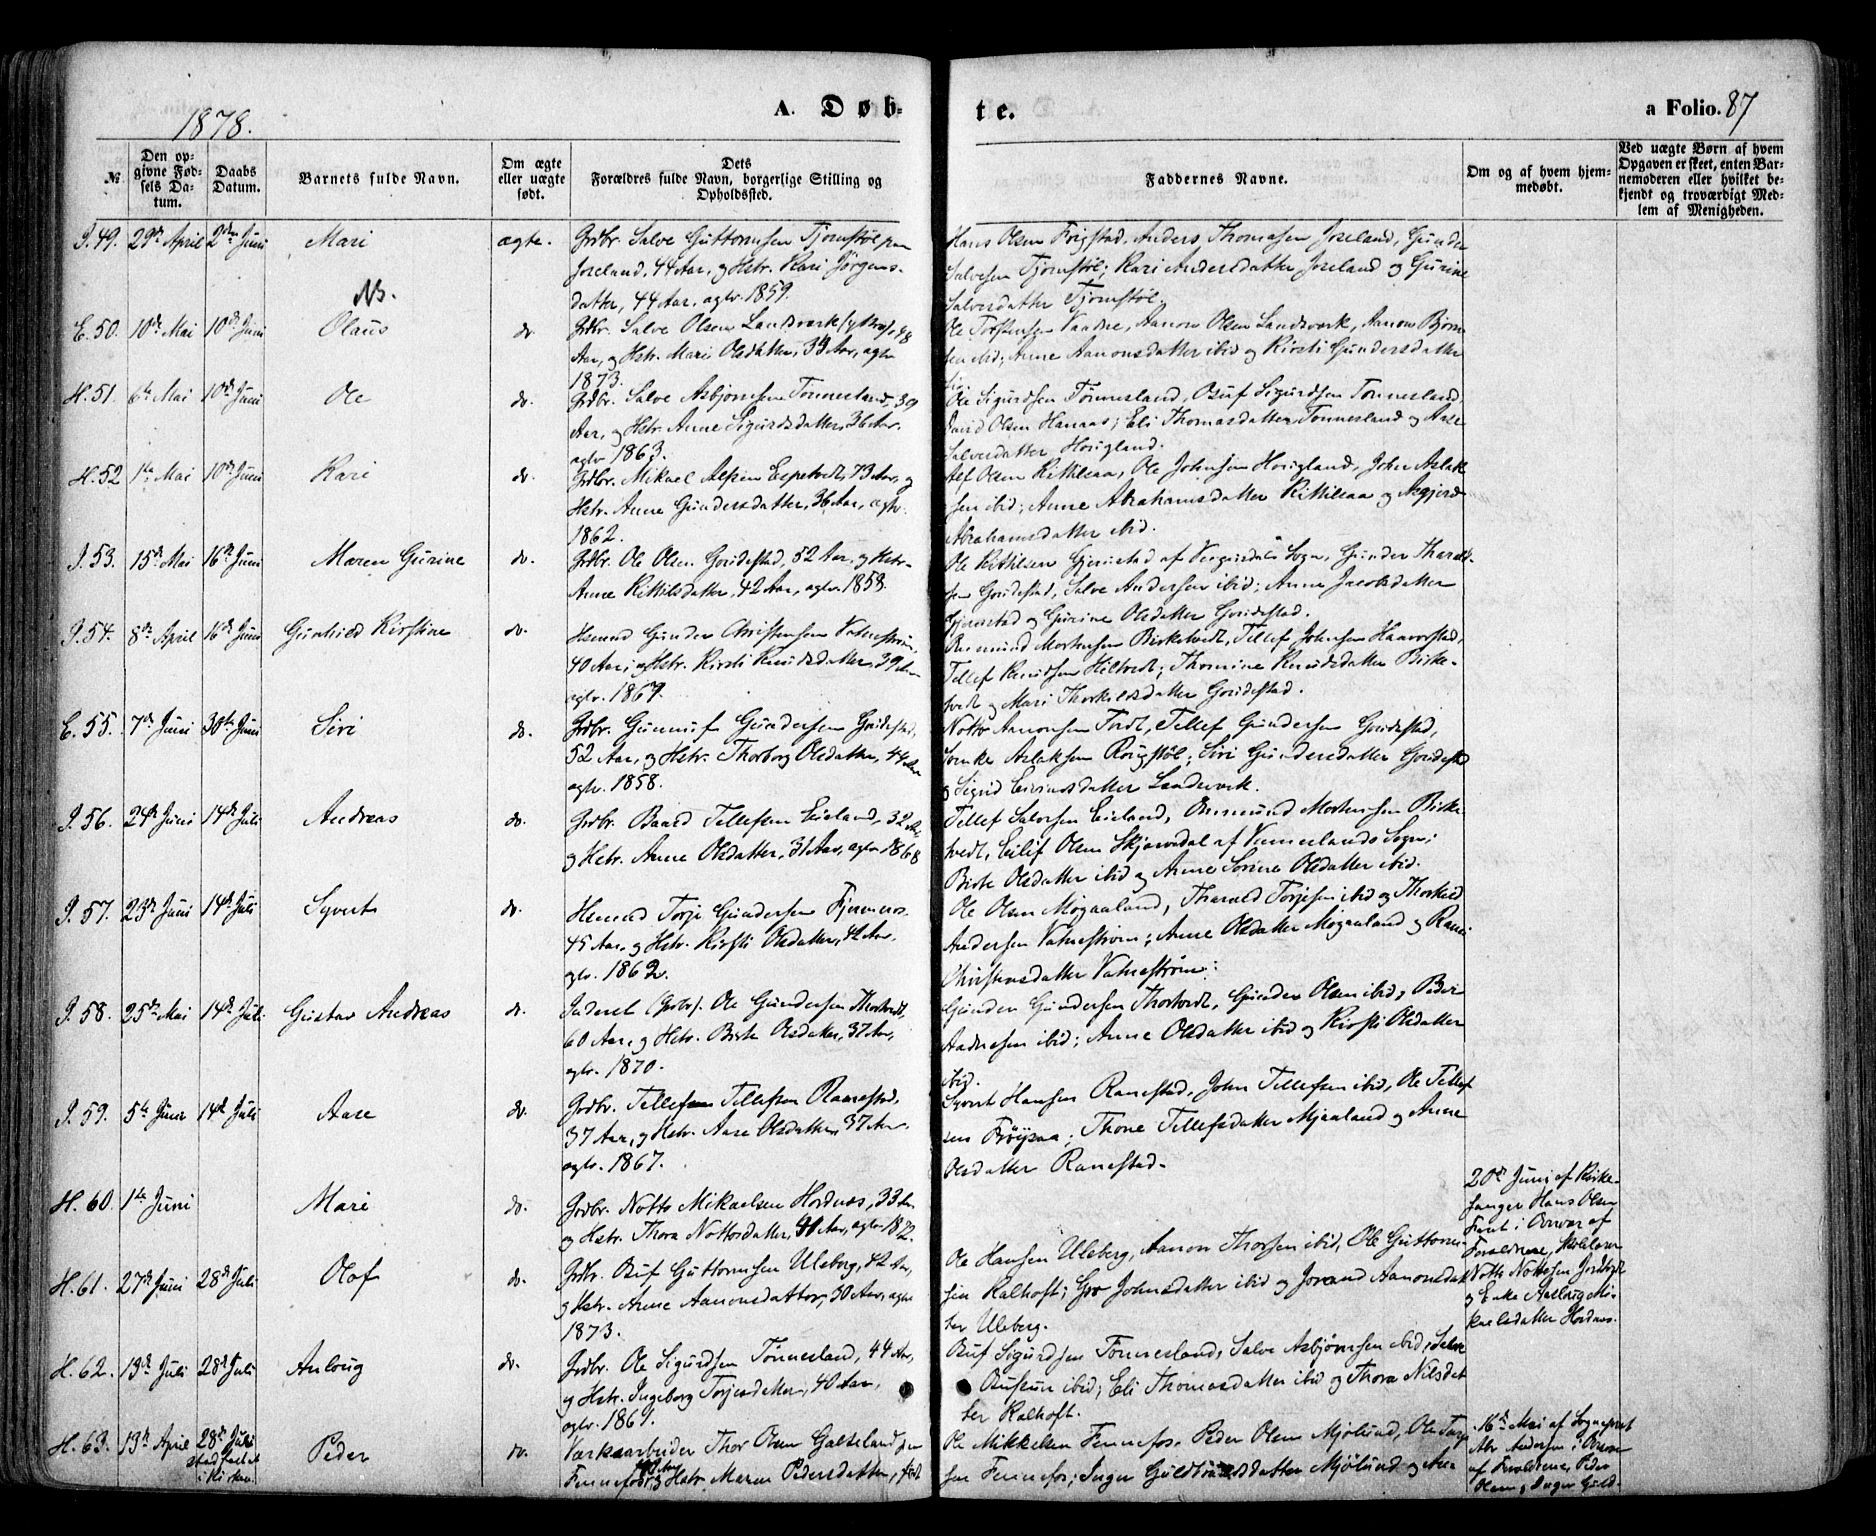 1878.
A. Døb-
te.
a Folio. 87
№
Den op-
givne Fød-
sels Da-
tum.
Daabs
Datum.
Barnets fulde Navn.
Om ægte
eller uægte
født.
Dets
Forældres fulde Navn, borgerlige Stilling og
Opholdssted.
Faddernes Navne.
Om og af hvem hjem-
medøbt.
Ved uægte Børn af hvem
Opgaven er skeet, enten Bar-
nemoderen eller hvilket be-
kjendt og troværdigt Med-
lem af Menigheden.
I. 49. 29de April 2den Juni Mari ægte. Grdbr. Salve Guttormsen Tjomstøl paa
Joreland, 44 Aar, og Hstr. Kari Jørgens-
datter, 44 Aar, agtv. 1859.
Hans Olsen Frigstad, Anders Thomasen Joreland, Gunder
Salvesen Tjomstøl; Kari Andersdatter Joreland og Gurine
Salvesdatter Tjomstøl.
NB.
E. 50. 10de Mai 10de Juni Olaus do Grdbr. Salve Olsen Landsverk, 48
Aar, og Hstr. Mari Olsdatter, 34 Aar, agtv.
1873.
Ole Torstensen Vaadne, Aanon Olsen Landsverk, Aanon Bjorn-
sen ibid; Anne Aanonsdatter ibid og Kirsti Gundersdatter
H. 51. 6te Mai 10de Juni Ole do. Grdbr. Salve Asbjornsen Tonnesland, 39
Aar, og Hstr. Anne Sigurdsdatter, 36 Aar.
agtv. 1863.
Ole Sigurdsen Tønnesland, Osuf Sigurdsen Tonnesland,
David Olsen Hanaas; Eli Thomasdatter Tonnesland og Aase
Salvesdatter Horigland.
H. 52 1te Mai 10de Juni Kari do. Grdbr. Mikael Alfsen Espetvedt, 73 Aar, og
Hstr. Anne Gundersdatter, 36 Aar, agtv.
1862.
Alf Olsen Kittilsaa, Ole Johnsen Horigland, John Aslak-
sen ibid; Anne Abrahamsdatter Kittilsaa og Asgjerd
Abrahamsdatter ibid.
I. 53. 15de Mai 16de Juni Maren Gurine do. Grdbr. Ole Olsen Goridestad, 52 Aar, og Hstr.
Anne Kittilsdatter, 42 Aar, agtv. 1858.
Ole Kittilsen Gjerustad af Vegusdals Sogn, Gunder Tharald-
sen Goridestad, Salve Andersen ibid; Anne Jacobsdatter
Gjerustad og Gurine Olsdatter Goridestad.
I. 54. 8de April 16de Juni Gunhild Kirstine do. Hemand Gunder Christensen Vatnestrøm,
40 Aar, og Hstr. Kirsti Knudsdatter, 39 Aar
agtv. 1869.
Aanmund Mortensen Birketvedt, Tellef Johnsen Haavorstad,
Tellef Knudsen Hiltvedt; Thomine Knudsdatter Birke-
tvedt og Mari Thorkildsdatter Goridestad.
E. 55. 7de Juni 30te Juni Siri do. Grdbr. Gunnuf Gundersen Goridestad,
52 Aar, og Hstr. Thorborg Olsdatter, 44 Aar
agtv. 1858.
Notto Aanonsen Tvedt, Tellef Gundersen Goridestad,
Sveinke Aslaksen Røigstøl; Siri Gundersdatter Goridestad
og Sigrid Eivindsdatter Landsverk.
I. 56. 24de Juni 14de Juli Andreas do. Grdbr. Baard Tellefsen Eieland, 32 Aar,
og Hstr. Anne Olsdatter, 31 Aar, agtv. 1868
Tellef Salvesen Eieland, Aanmund Mortensen Birke-
tvedt, Eilif Olsen Skjævedal af Vennerlands Sogn;
Birte Olsdatter ibid og Anne Sorine Olsdatter ibid.
I. 57. 23de Juni 14de Juli Syvert do. Hemand Torje Gundersen Fjermeros.
45 Aar, og Hstr. Kirsti Olsdatter, 42 Aar.
agtv. 1862.
Ole Olsen Mogaaland, Tharald Torjesen ibid og Thorkild
Andersen Vatnestrøm; Anne Olsdatter Mogaaland og Kari
Christensdatter Vatnestrøm.
I. 58. 25de Mai 14de Juli Gustav Andreas do. Inderst (Grdbr). Ole Gundersen Thortvedt,
60 Aar, og Hstr. Birte Olsdatter, 37 Aar,
agtv. 1870.
Gunder Gundersen Thortvedt, Gunder Olsen ibid, Peder
Aadnesen ibid; Anne Olsdatter ibid og Kirsti Olsdatter
ibid.
I. 59. 5te Juni 14de Juli Aase do. Grdbr. Tellef Tellefsen Ranestad,
37 Aar, og Hstr. Aase Olsdatter, 37 Aar
agtv. 1867.
Syvert Hansen Ranestad, John Tellefsen ibid, Ole Tellef-
sen Frøysaa; Thone Tellefsdatter Mjaaland og Anne
Olsdatter Ranestad.
H. 60. 1te Juni Mari do. Grdbr. Notto Mikaelsen Hordnes, 33 Aar
og Hstr. Thora Nottosdatter, 41 Aar, agtv. 1872.
20de Juni af Kirke-
sanger Hans Olsen
Tveit i Overvær af
Forældrene, Skolelærer
Notto Nottosen
og Enke Aaslaug Mi-
kaelsdatter Hordnes.
H. 61. 27de Juni 28de Juli Olof do. Grdbr. Osuf Guttormsen Uleberg, 42 Aar,
og Hstr. Anne Aanonsdatter, 30 Aar, agtv.
1873.
Ole Hansen Uleberg, Aanon Thorsen ibid, Ole Guttorm-
sen Kalhoft; Gro Johnsdatter ibid og Jorand Aanonsdat-
ter Uleberg.
H. 62. 13de Juli 28de Juli Anloug do. Grdbr. Ole Sigurdsen Tønnesland, 44 Aar,
og Hstr. Ingeborg Torjesdatter, 40 Aar,
agtv. 1861.
Osuf Sigurdsen Tonnesland, Salve Asbjørnsen ibid, Salve
Osufsen ibid; Eli Thomasdatter ibid og Thora Nilsdat-
ter Kalhoft.
H. 63. 13de April 28de Juli
stadfæstet
i Kirken.
Peder do. Værksarbeider Thor Olsen Galteland paa
Fennefos, og Hstr. Maren Pedersdatter,
Ole Mikkelsen Fennefos, Peder Olsen Mjølund, Ole
sen Fennefos; Inger Guldbrandsdatter Mjølund og
16de Mai af Sogneprest
Abr. Andersen i Overvær
af Forældrene, Peder
Olsen og Inger Guld-